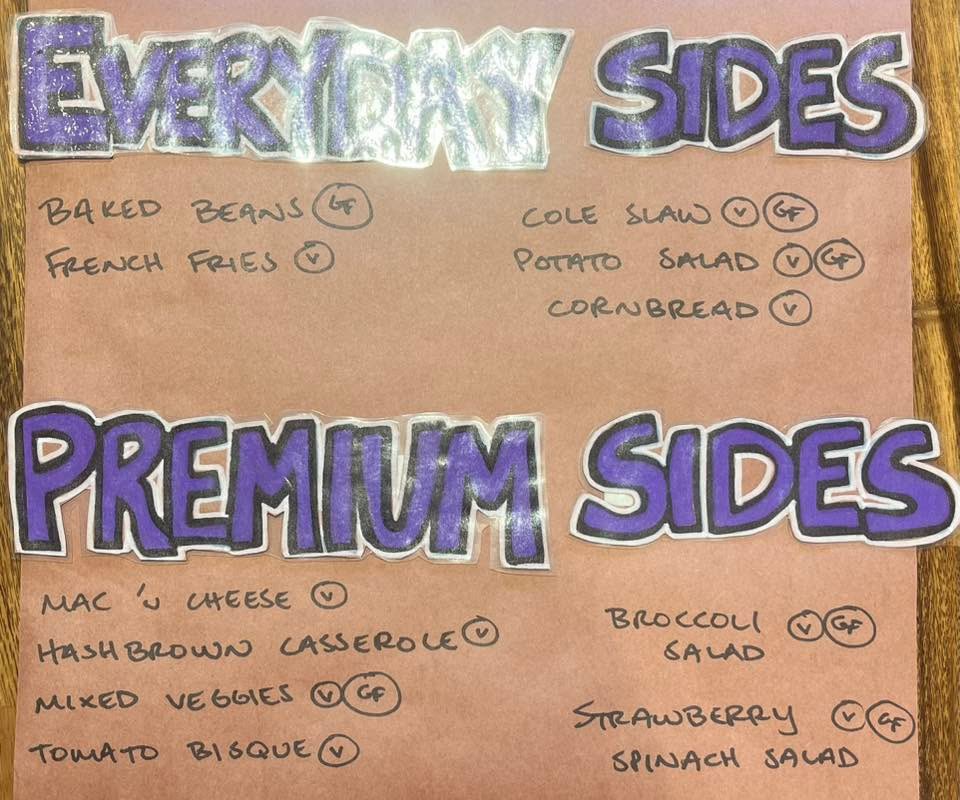 EVERYDAY SIDES
BAKED BEANS GF
FRENCH FRIES V
COLE SLAW V GF
POTATO SALAD V GF
CORNBREAD V
PREMIUM SIDES
MAC 'N CHEESE V
HASHBROWN CASSEROLE V
MIXED VEGGIES V GF
TOMATO BISQUE V
BROCCOLI V GF
SALAD
STRAWBERRY V GF
SPINACH SALAD